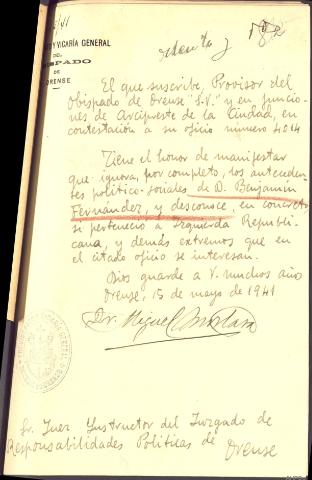 Y VICARÍA GENERAL
DEL
OBISPADO
DE
ORENSE
El que suscribe, Provisor del
Obispado de Orense "S.V." y en funcio-
nes de Arcipreste de la Ciudad, en
contestación a su oficio número 4014
Tiene el honor de manifestar
que ignora, por completo, los anteceden-
tes político-sociales de D. Benjamín
Fernández, y desconoce, en concreto,
si perteneció a Izquierda Republi-
cana, y demás extremos que en
el citado oficio se interesan.
Dios guarde a V. muchos años
Orense, 15 de mayo de 1941
Dr. Miguel
Sr. Juez Instructor del Juzgado de
Responsabilidades Políticas de Orense